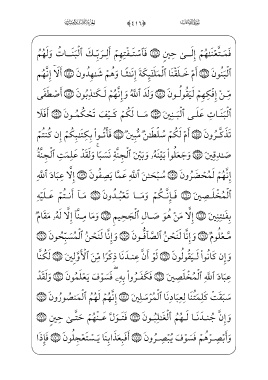 فَمَتَّعْنَٰهُمْ إِلَىٰ حِينٍ فَٱسْتَفْتِهِمْ أَلِرَبِّكَ ٱلْبَنَاتُ وَلَهُمُ
ٱلْبَنُونَ أَمْ خَلَقْنَا ٱلْمَلَٰٓئِكَةَ إِنَٰثًا وَهُمْ شَٰهِدُونَ أَلَآ إِنَّهُم
مِّنْ إِفْكِهِمْ لَيَقُولُونَ وَلَدَ ٱللَّهُ وَإِنَّهُمْ لَكَٰذِبُونَ أَصْطَفَى
ٱلْبَنَاتِ عَلَى ٱلْبَنِينَ مَا لَكُمْ كَيْفَ تَحْكُمُونَ أَفَلَا
تَذَكَّرُونَ أَمْ لَكُمْ سُلْطَٰنٌ مُّبِينٌ فَأْتُوا۟ بِكِتَٰبِكُمْ إِن كُنتُمْ
صَٰدِقِينَ وَجَعَلُوا۟ بَيْنَهُۥ وَبَيْنَ ٱلْجِنَّةِ نَسَبًا وَلَقَدْ عَلِمَتِ ٱلْجِنَّةُ
إِنَّهُمْ لَمُحْضَرُونَ سُبْحَٰنَ ٱللَّهِ عَمَّا يَصِفُونَ إِلَّا عِبَادَ ٱللَّهِ
ٱلْمُخْلَصِينَ فَإِنَّكُمْ وَمَا تَعْبُدُونَ مَآ أَنتُمْ عَلَيْهِ
بِفَٰتِنِينَ إِلَّا مَنْ هُوَ صَالِ ٱلْجَحِيمِ وَمَا مِنَّآ إِلَّا لَهُۥ مَقَامٌ
مَّعْلُومٌ وَإِنَّا لَنَحْنُ ٱلصَّآفُّونَ وَإِنَّا لَنَحْنُ ٱلْمُسَبِّحُونَ
وَإِن كَانُوا۟ لَيَقُولُونَ لَوْ أَنَّ عِندَنَا ذِكْرًا مِّنَ ٱلْأَوَّلِينَ لَكُنَّا
عِبَادَ ٱللَّهِ ٱلْمُخْلَصِينَ فَكَفَرُوا۟ بِهِۦ فَسَوْفَ يَعْلَمُونَ وَلَقَدْ
سَبَقَتْ كَلِمَتُنَا لِعِبَادِنَا ٱلْمُرْسَلِينَ إِنَّهُمْ لَهُمُ ٱلْمَنصُورُونَ
وَإِنَّ جُندَنَا لَهُمُ ٱلْغَٰلِبُونَ فَتَوَلَّ عَنْهُمْ حَتَّىٰ حِينٍ
وَأَبْصِرْهُمْ فَسَوْفَ يُبْصِرُونَ أَفَبِعَذَابِنَا يَسْتَعْجِلُونَ فَإِذَا